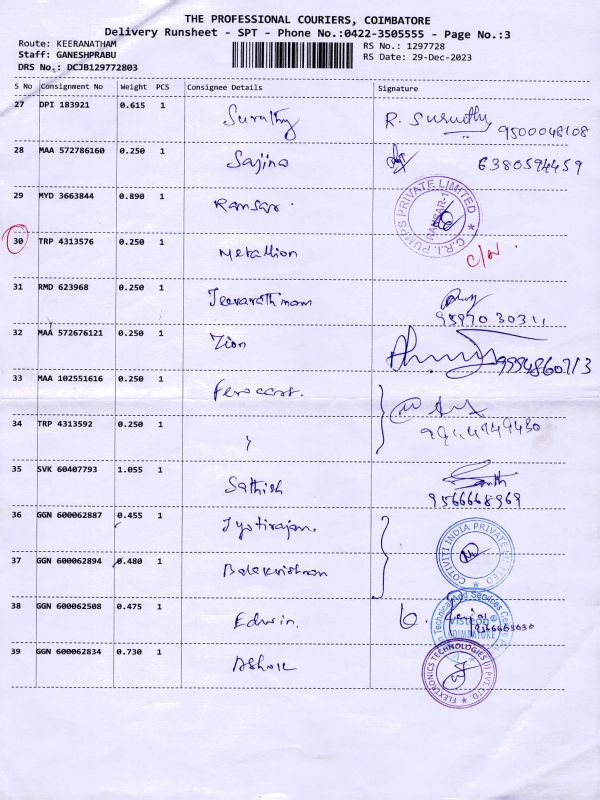 THE PROFESSIONAL COURIERS, COIMBATORE
Delivery Runsheet - SPT - Phone No.:0422-3505555 - Page No.:3
Route: KEERANATHAM
RS No.: 1297728
Staff: GANESHPRABU
RS Date: 29-Dec-2023
DRS No.: DCJB129772803
S No Consignment No Weight PCS Consignee Details Signature
27 DPI 183921 0.615 1 Suruthy R. Suruthy
9500048108
28 MAA 572786160 0.250 1 Sajina 6380594459
29 MYD 3663844 0.890 1 Ransar. C.R.I. PUMPS PRIVATE LIMITED
RANSAR-1
30 TRP 4313576 0.250 1 Metallion C/N.
31 RMD 623968 0.250 1 Jeevarathinam
32 MAA 572676121 0.250 1 Zion 9994860713
33 MAA 102551616 0.250 1 Ferocast.
34 TRP 4313592 0.250 1 "
35 SVK 60407793 1.055 1 Sathish
9566668969
36 GGN 600062887 0.455 1 Jyotirajan.
37 GGN 600062894 0.480 1 Balakrishnan COTIVITI INDIA PRIVATE LIMITED
38 GGN 600062508 0.475 1 Edwin.
Visteon Technical And Services Centre
COIMBATORE
39 GGN 600062834 0.730 1 Ashok FLEXTRONICS TECHNOLOGIES (I) PVT. LTD.